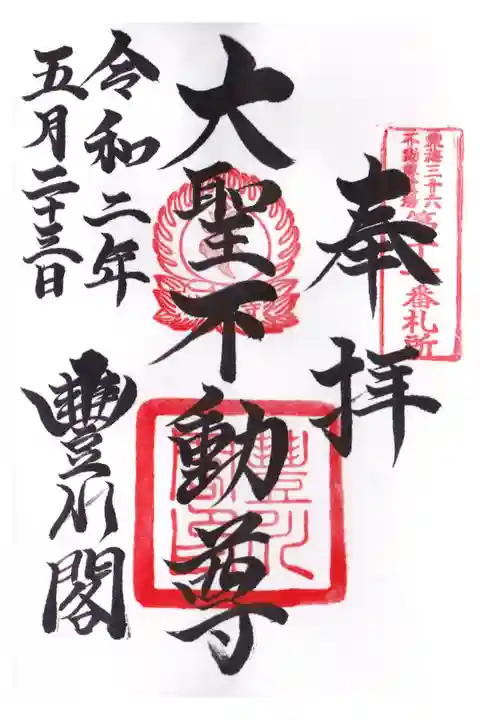 東海三十六
不動尊霊場
第十一番札所
奉拝
大聖不動尊
令和二年
五月二十三日
豐川閣